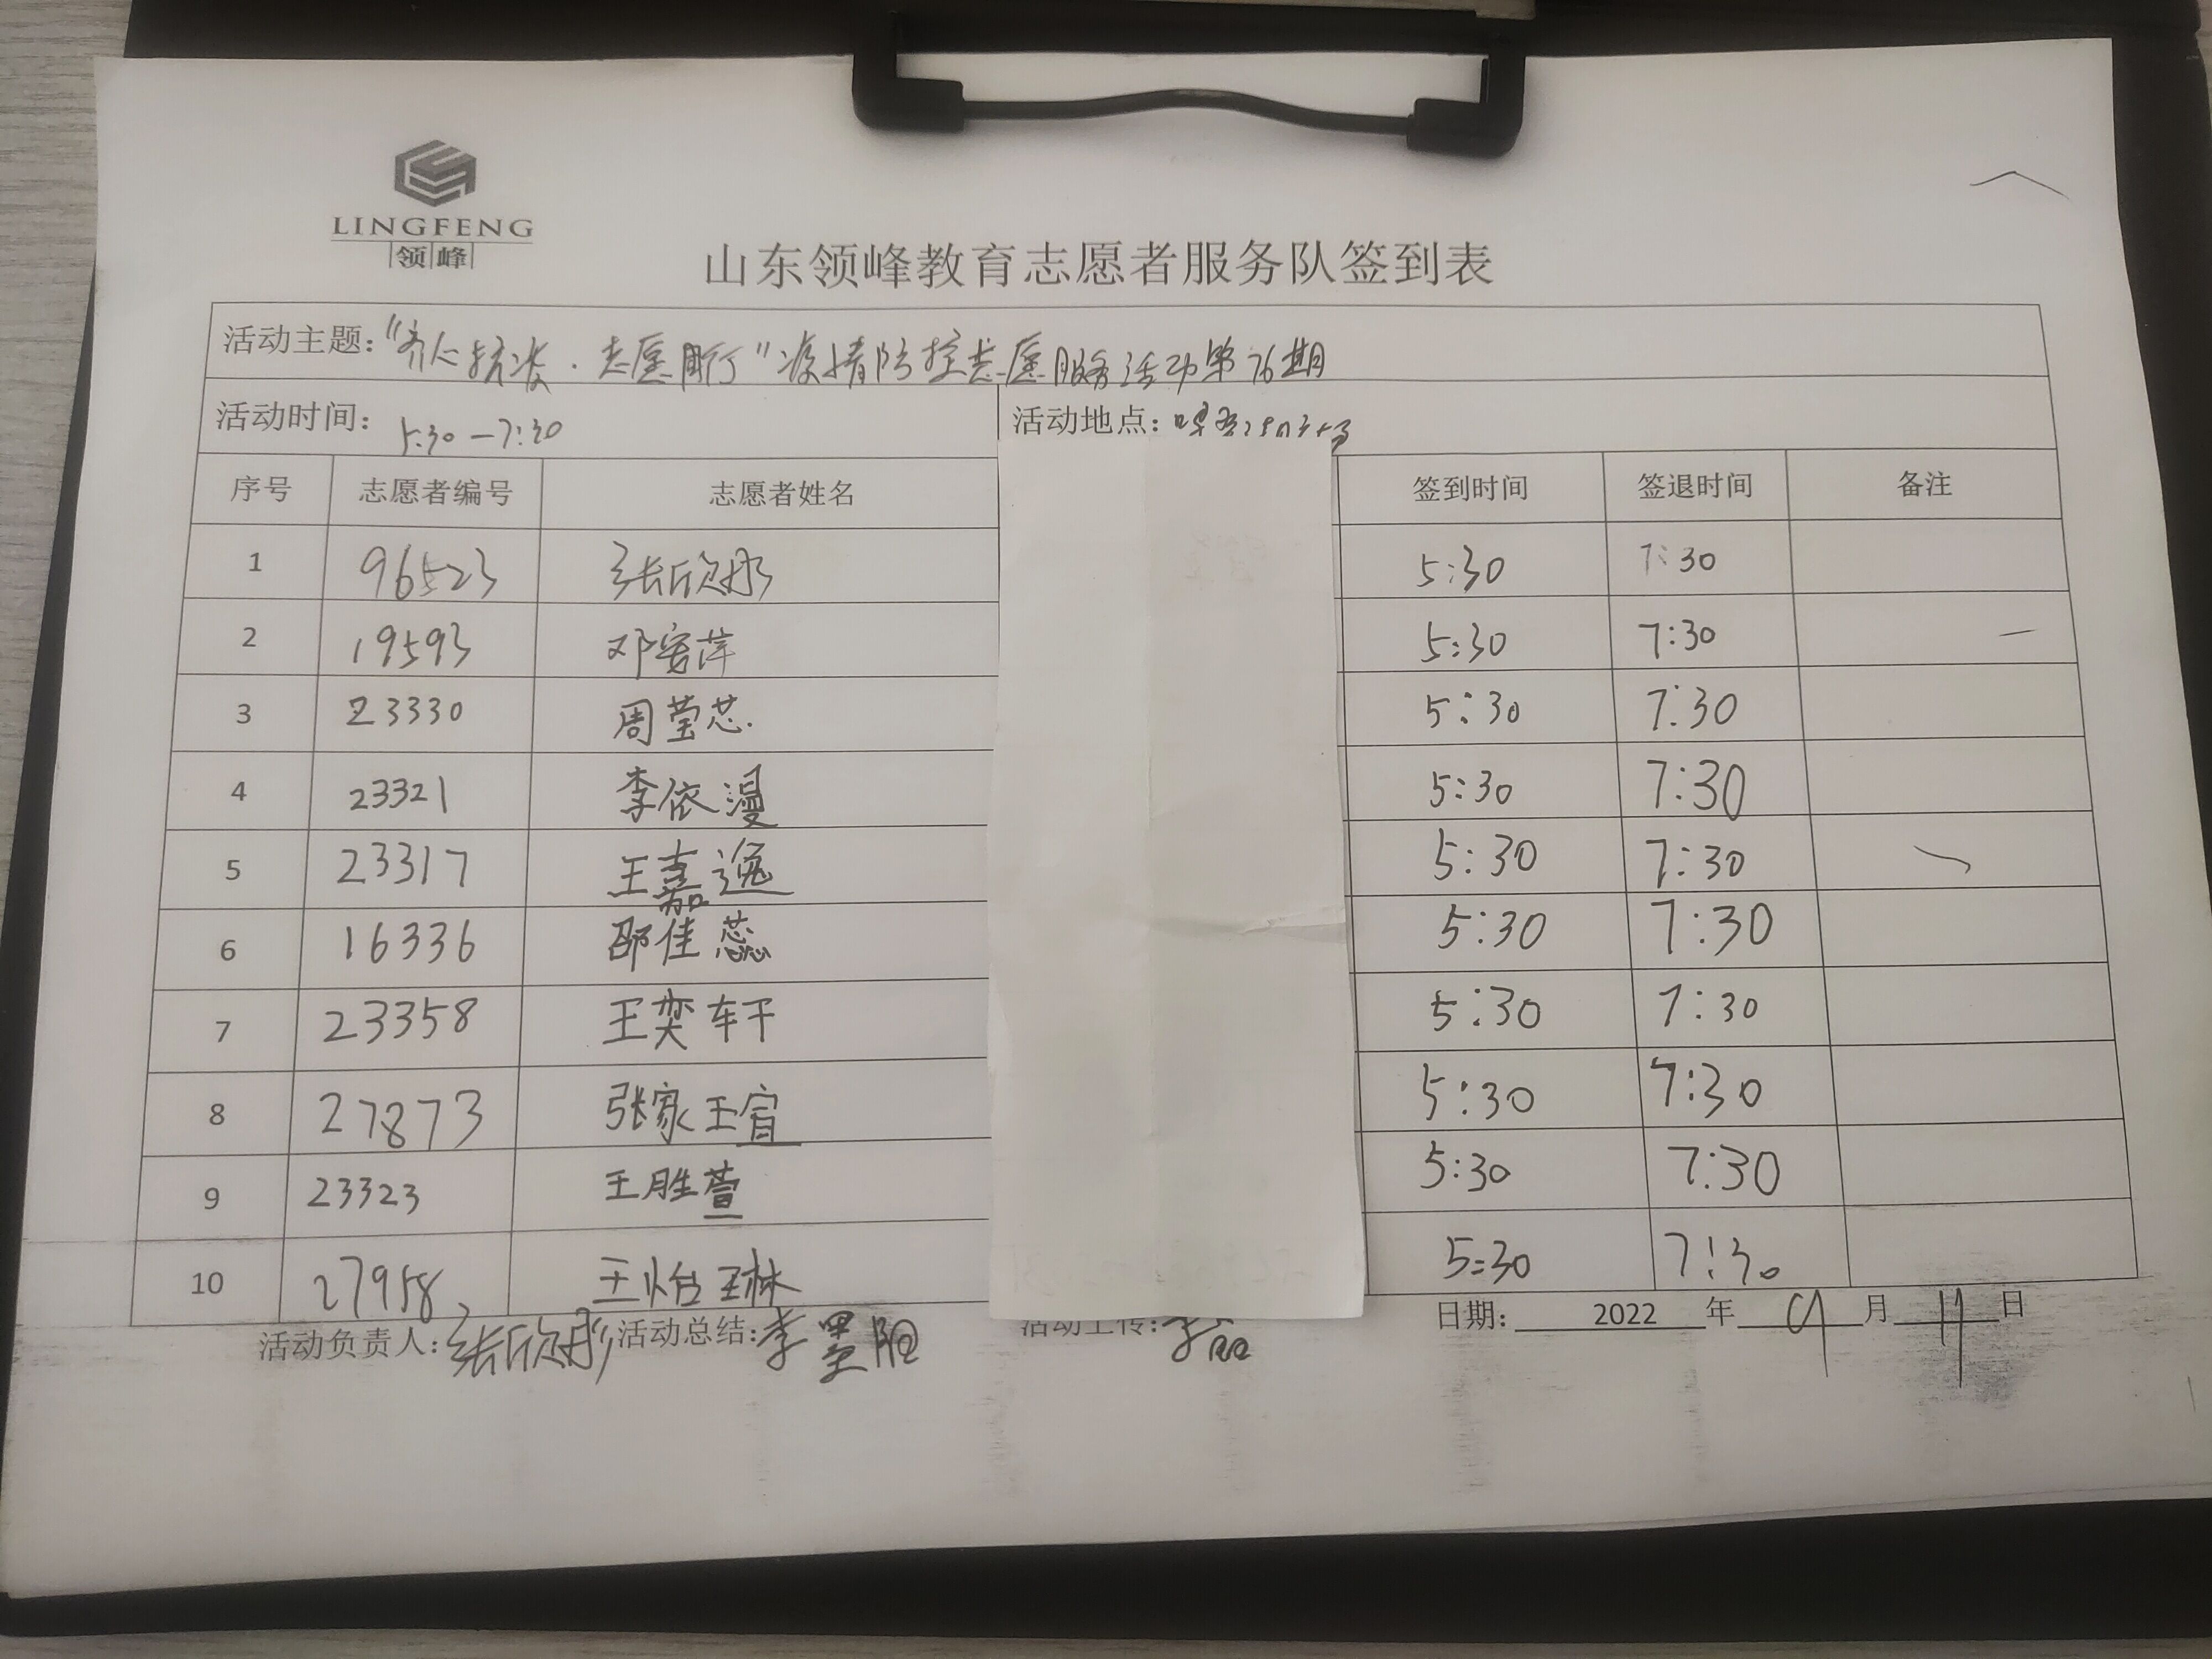 LINGFENG
领峰
山东领峰教育志愿者服务队签到表
活动主题:"齐心抗疫·志愿同行"疫情防控志愿服务活动第76期
活动时间: 5:30—7:30 活动地点:
序号 志愿者编号 志愿者姓名 签到时间 签退时间 备注
1 96523 张欣彤 5:30 7:30
2 19593 邓安萍 5:30 7:30
3 23330 周莹芯. 5:30 7:30
4 23321 李依漫 5:30 7:30
5 23317 王嘉逸 5:30 7:30
6 16336 邵佳蕊 5:30 7:30
7 23358 王奕轩 5:30 7:30
8 27873 张家瑄 5:30 7:30
9 23323 王胜萱 5:30 7:30
10 27958 王怡琳 5:30 7:30
活动负责人:张欣彤 活动总结:李墨 活动上传: 日期: 2022 年 9 月 11 日